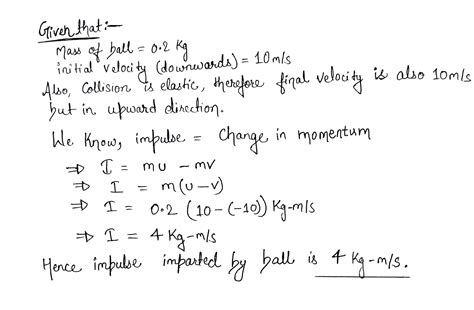 Given that:-
Mass of ball = 0.2 Kg
initial velocity (downwards) = 10 m/s
Also, Collision is elastic, therefore final velocity is also 10 m/s
but in upward direction.
We Know, impulse = Change in momentum
⇒ I = mu - mv
⇒ I = m(u-v)
⇒ I = 0.2 (10-(-10)) Kg-m/s
⇒ I = 4 Kg-m/s
Hence impulse imparted by ball is 4 Kg-m/s.